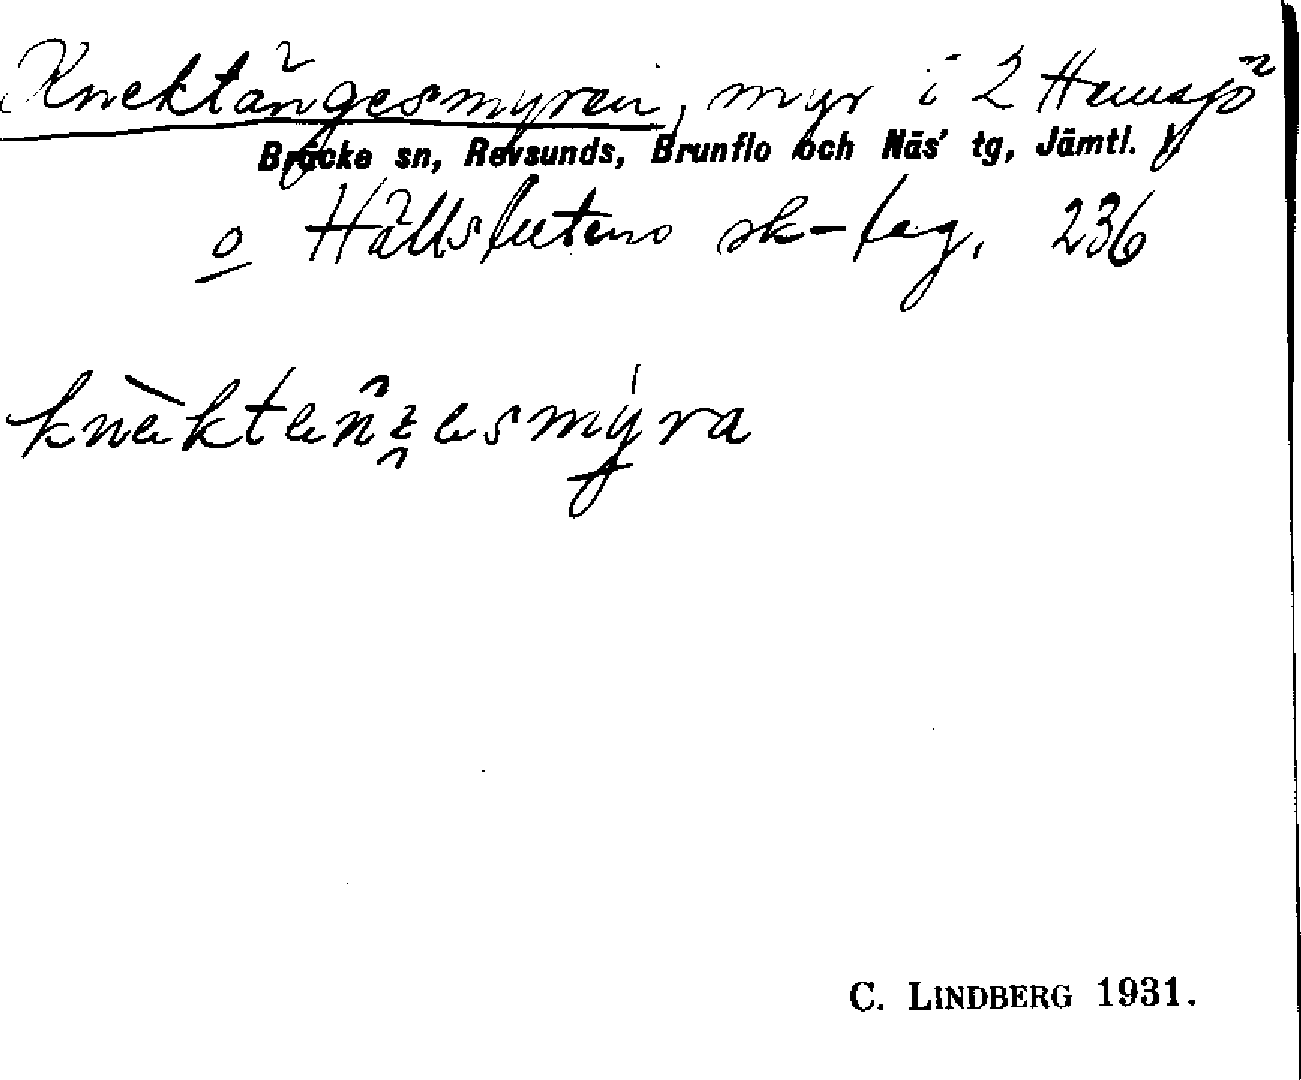 Knektängesmyren, myr i 2 Hemsjö
Bräcke sn, Revsunds, Brunflo och Näs' tg, Jämtl.
o Hällslutens sk-lag. 236
knèktenzesmýra
C. LINDBERG 1931.